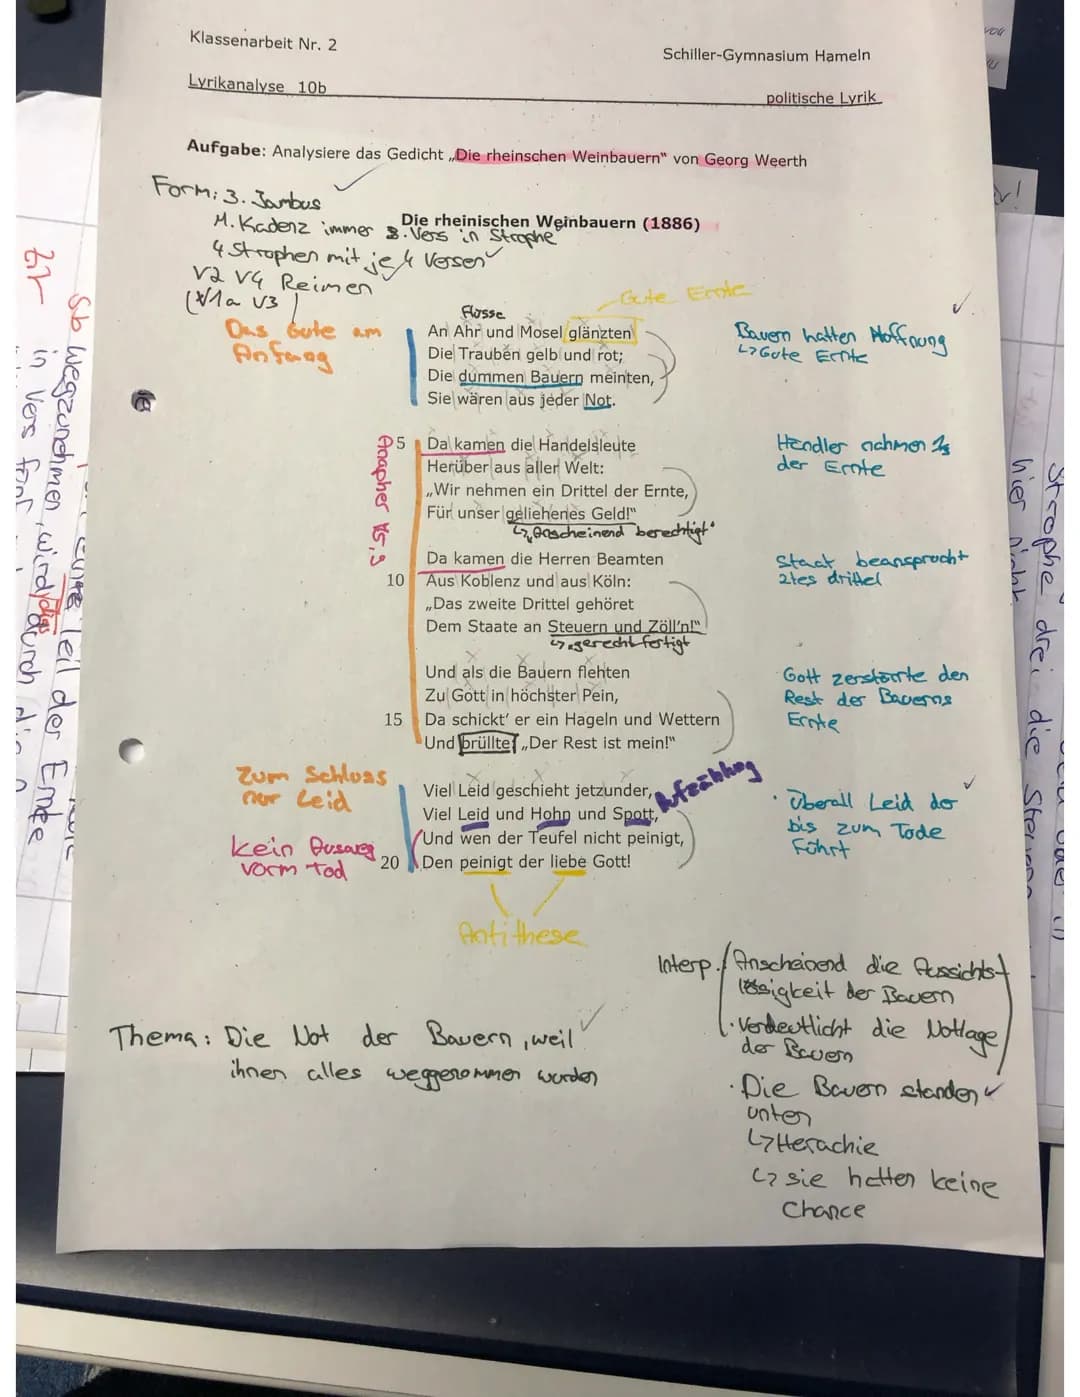 Klassenarbeit Nr. 2
Schiller-Gymnasium Hameln
Lyrikanalyse 10b
politische Lyrik
Aufgabe: Analysiere das Gedicht „Die rheinschen Weinbauern" von Georg Weerth
Form: 3. Jambus
Die rheinischen Weinbauern (1886)
M. Kadenz immer 3. Vers in Strophe
4 Strophen mit je 4 Versen
V2 V4 Reimen
V1a V3
Gute Ernte
Flüsse
Das Gute am
Anfang
An Ahr und Mosel glänzten
Die Trauben gelb und rot;
Die dummen Bauern meinten,
Sie wären aus jeder Not.
Bauern hatten Hoffnung
↳ Gute Ernte
Anapher V5,9
5 Da kamen die Handelsleute
Herüber aus aller Welt:
„Wir nehmen ein Drittel der Ernte,
Für unser geliehenes Geld!"
↳ „Anscheinend berechtigt"
Händler nahmen
der Ernte
Da kamen die Herren Beamten
10 Aus Koblenz und aus Köln:
„Das zweite Drittel gehöret
Dem Staate an Steuern und Zöll'n!"
↳ gerechtfertigt
Staat beansprucht
2tes drittel
Und als die Bauern flehten
Zu Gott in höchster Pein,
15 Da schickt' er ein Hageln und Wettern
Und brüllte: „Der Rest ist mein!"
Gott zerstörrte den
Rest der Bauerns
Ernte
Zum Schluss
nur Leid
kein Ausweg
vorm Tod
Viel Leid geschieht jetzunder,
Viel Leid und Hohn und Spott,
Und wen der Teufel nicht peinigt,
20 Den peinigt der liebe Gott!
Aufzählung
· Überall Leid der
bis zum Tode
Führt
Antithese
Interp. Anscheinend die Aussichts-
lösigkeit der Bauern
· Verdeutlicht die Notlage
der Bauern
· Die Bauern standen
unten
↳ Herachie
↳ sie hatten keine
Chance
Thema: Die Not der Bauern, weil
ihnen alles weggenommen wurden
wegzunehmen, wird
Teil der Ernte
in Vers fünf durch die
Strophe drei die Steuern
hier nicht